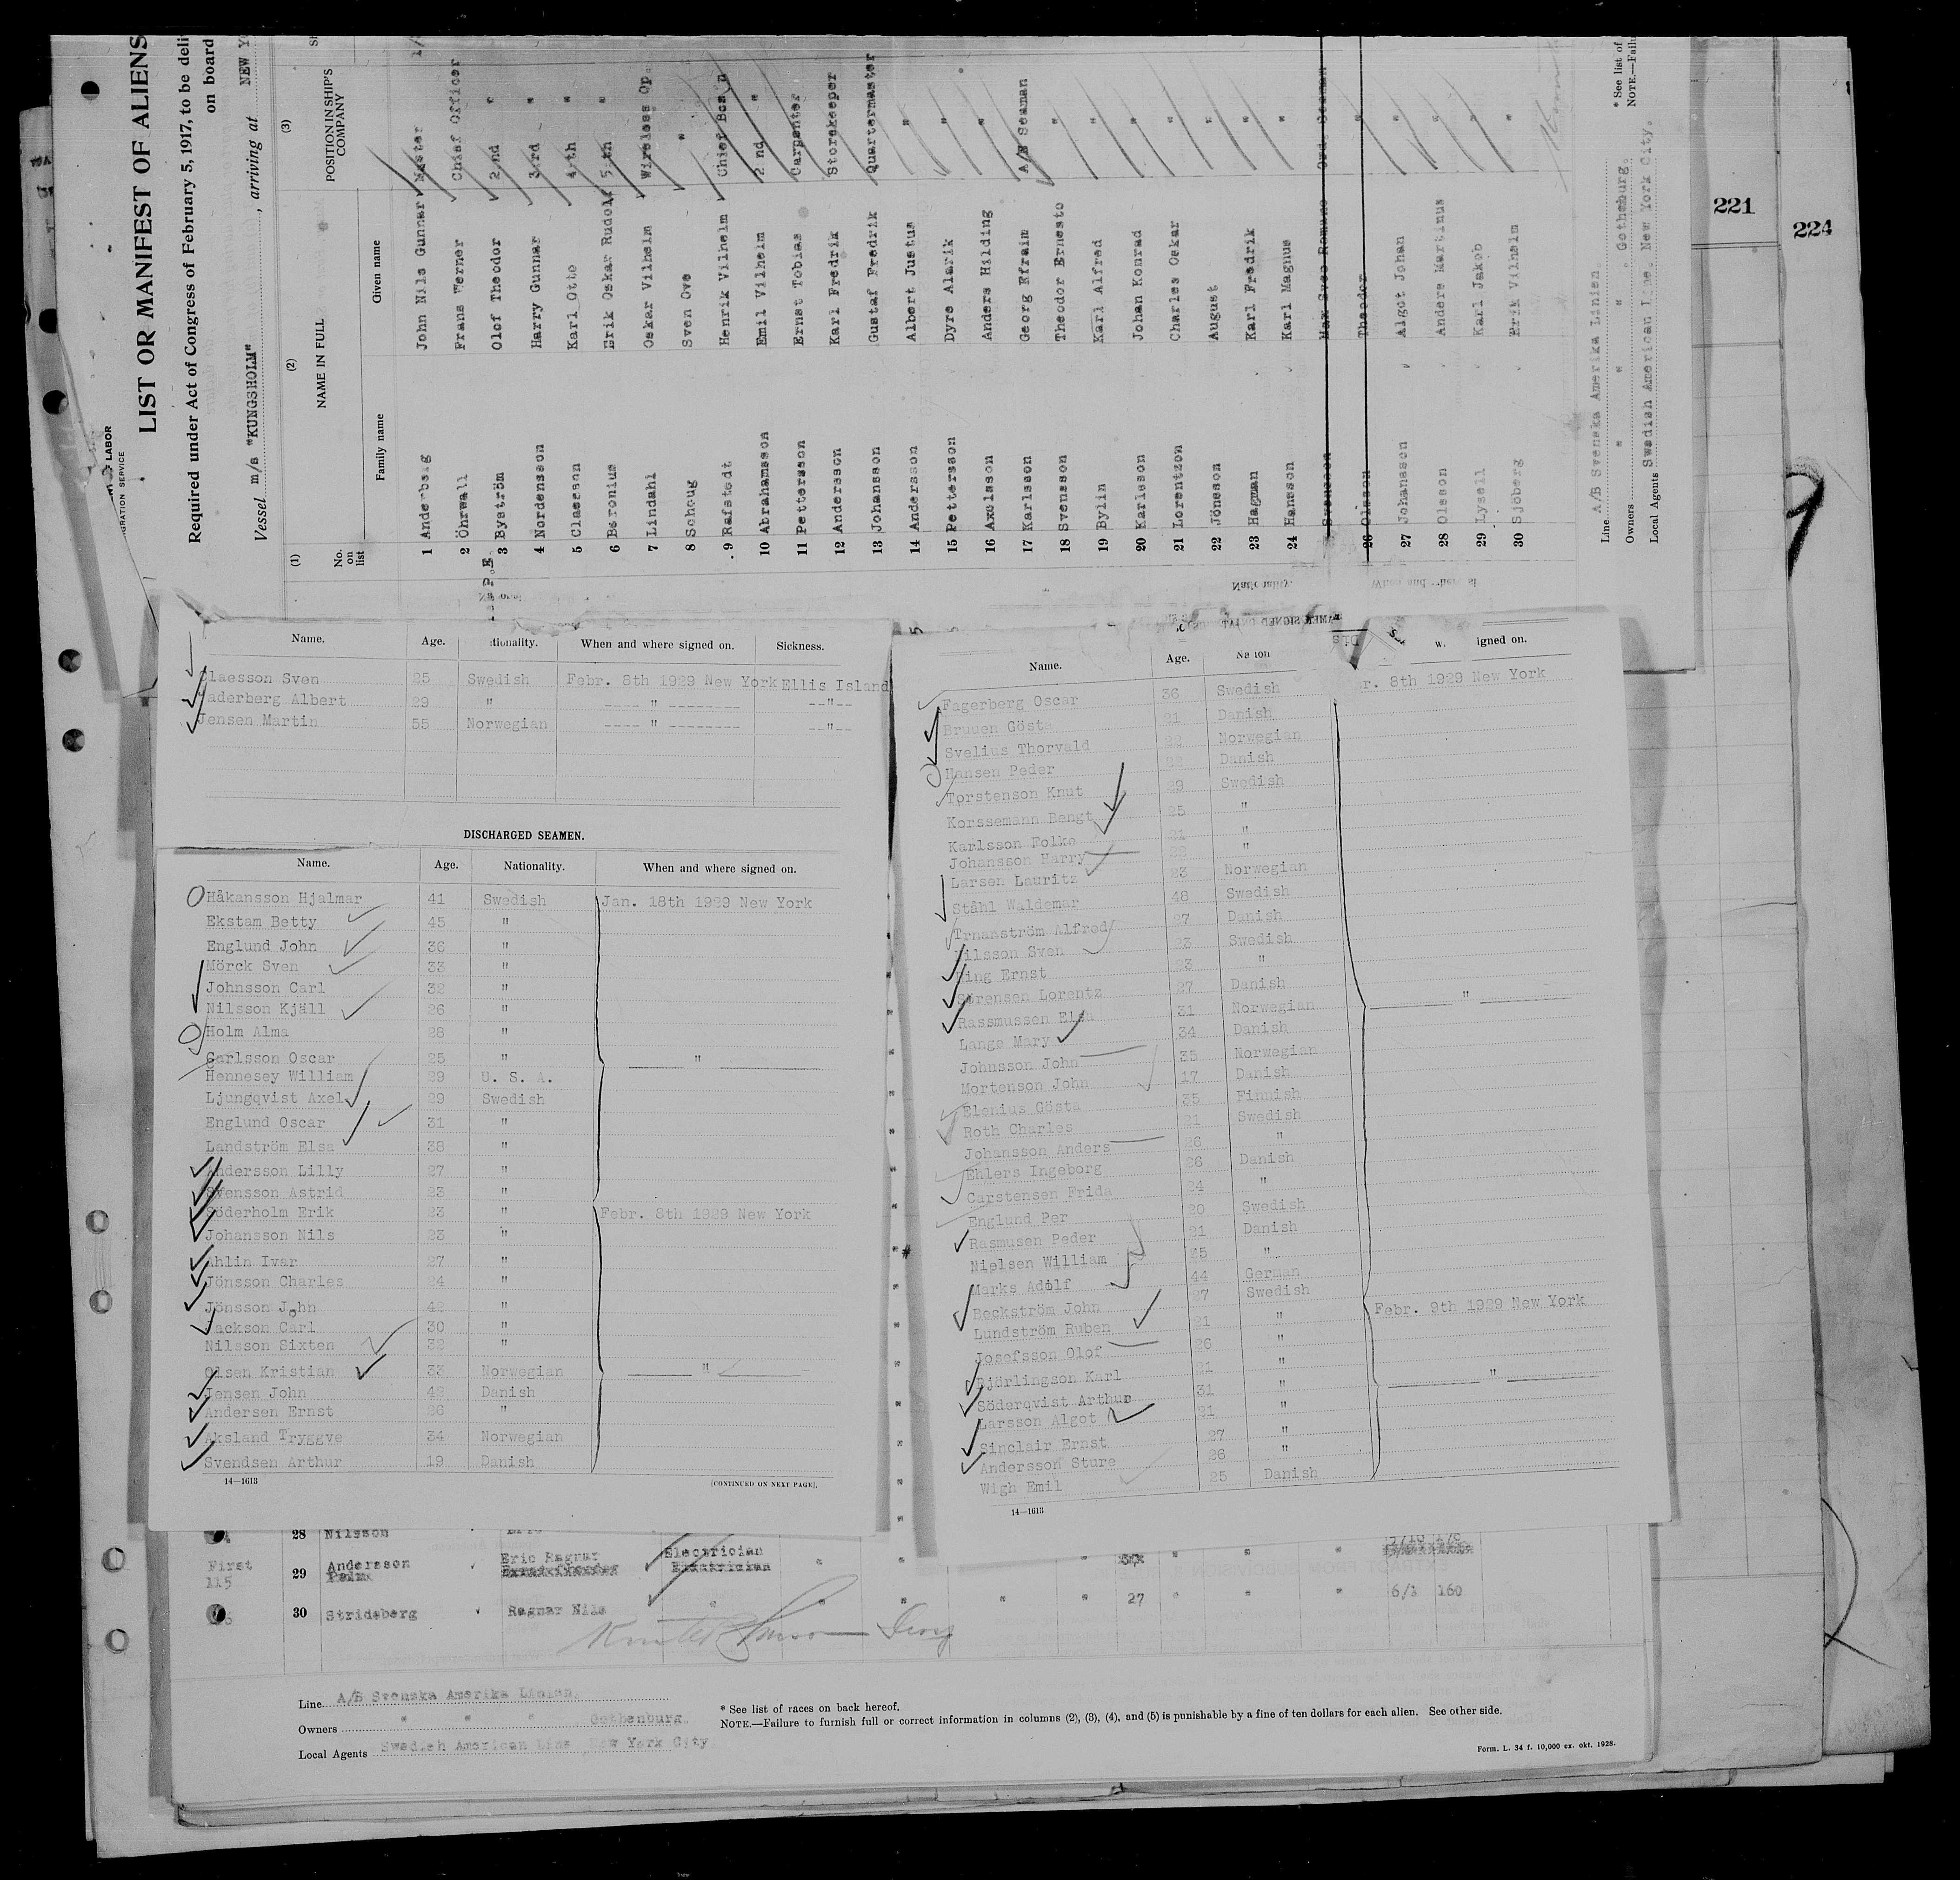 LIST OR MANIFEST OF ALIENS
Required under Act of Congress of February 5, 1917, to be
on board
Vessel m/s "KUNGSHOLM", arriving at NEW
(1) (2) (3)
No. on list NAME IN FULL POSITION IN SHIP'S COMPANY
Family name Given name
1 Anderberg John Nils Gunnar Master
2 Öhrwall Frans Werner Chief Officer
3 Byström Olof Theodor 2nd "
4 Nordensson Harry Gunnar 3rd "
5 Claesson Karl Otto 4th "
6 Beronius Erik Oskar Rudolf 5th "
7 Lindahl Oskar Vilhelm Wireless Op.
8 Schoug Sven Ove "
9 Rafstedt Henrik Vilhelm Chief Bos'n
10 Abrahamsson Emil Vilhelm 2nd "
11 Pettersson Ernst Tobias Carpenter
12 Andersson Karl Fredrik Storekeeper
13 Johansson Gustaf Fredrik Quartermaster
14 Andersson Albert Justus "
15 Pettersson Dyre Alarik "
16 Axelsson Anders Hilding "
17 Karlsson Georg Efraim A/B Seaman
18 Svensson Theodor Ernesto "
19 Bylin Karl Alfred "
20 Karlsson Johan Konrad "
21 Lorentzon Charles Oskar "
22 Jönsson August "
23 Hagman Karl Fredrik "
24 Hansson Karl Magnus "
Svensson Ord. Seaman
26 Olsson Theodor "
27 Johansson Algot Johan "
28 Olsson Anders Martinus "
29 Lysell Karl Jakob "
30 Sjöberg Erik Vilhelm "
Line A/B Svenska Amerika Linien.
Owners " " " Gothenburg.
Local Agents Swedish American Line. New York City.
* See list of
221
224
Name. Age. Nationality. When and where signed on. Sickness.
Claesson Sven 25 Swedish Febr. 8th 1929 New York Ellis Island
aderberg Albert 29 " ---- " -------- --"--
Jensen Martin 55 Norwegian ---- " -------- --"--
DISCHARGED SEAMEN.
Name. Age. Nationality. When and where signed on.
Håkansson Hjalmar 41 Swedish Jan. 18th 1929 New York
Ekstam Betty 45 "
Englund John 36 "
Mörck Sven 33 "
Johnsson Carl 32 "
Nilsson Kjäll 26 "
Holm Alma 28 "
Carlsson Oscar 25 " "
Hennesey William 29 U. S. A.
Ljungqvist Axel 29 Swedish
Englund Oscar 31 "
Landström Elsa 38 "
Andersson Lilly 27 "
Svensson Astrid 23 "
Söderholm Erik 23 " Febr. 8th 1929 New York
Johansson Nils 23 "
Ahlin Ivar 27 "
Jönsson Charles 24 "
Jönsson John 42 "
Jackson Carl 30 "
Nilsson Sixten 32 "
Olsen Kristian 33 Norwegian "
Jensen John 42 Danish
Andersen Ernst 26 "
Aksland Tryggve 34 Norwegian
Svendsen Arthur 19 Danish
14—1613 [CONTINUED ON NEXT PAGE].
Name. Age. igned on.
Fagerberg Oscar 36 Swedish r. 8th 1929 New York
Bruuen Gösta 21 Danish
Svelius Thorvald 22 Norwegian
Hansen Peder 22 Danish
Torstenson Knut 29 Swedish
Korssemann Bengt 25 "
Karlsson Folke 21 "
Johansson Harry 22 "
Larsen Lauritz 23 Norwegian
Ståhl Waldemar 48 Swedish
Trnanström Alfred 27 Danish
Nilsson Sven 23 Swedish
Ring Ernst 23 "
Sörensen Lorentz 27 Danish
Rassmussen Elsa 31 Norwegian "
Lange Mary 34 Danish
Johnsson John 35 Norwegian
Mortenson John 17 Danish
Elenius Gösta 35 Finnish
Roth Charles 21 Swedish
Johansson Anders 26 "
Ehlers Ingeborg 26 Danish
Carstensen Frida 24 "
Englund Per 20 Swedish
Rasmusen Peder 21 Danish
Nielsen William 45 "
Marks Adolf 44 German
Beckström John 27 Swedish Febr. 9th 1929 New York
Lundström Ruben 21 "
Josefsson Olof 26 "
Björlingson Karl 21 "
Söderqvist Arthur 31 " "
Larsson Algot 21 "
Sinclair Ernst 27 "
Andersson Sture 26 "
Wigh Emil 25 Danish
14—1613
28 Nilsson
First 115 29 Andersson Eric Ragnar Electrician
30 Stridsberg Ragnar Nils " " " " " 27 " " " 6/1 160
Line A/B Svenska Amerika Linien.
Owners " " " Gothenburg.
Local Agents Swedish American Line New York City
* See list of races on back hereof.
NOTE.—Failure to furnish full or correct information in columns (2), (3), (4), and (5) is punishable by a fine of ten dollars for each alien. See other side.
Form. L. 34 f. 10,000 ex. okt. 1928.